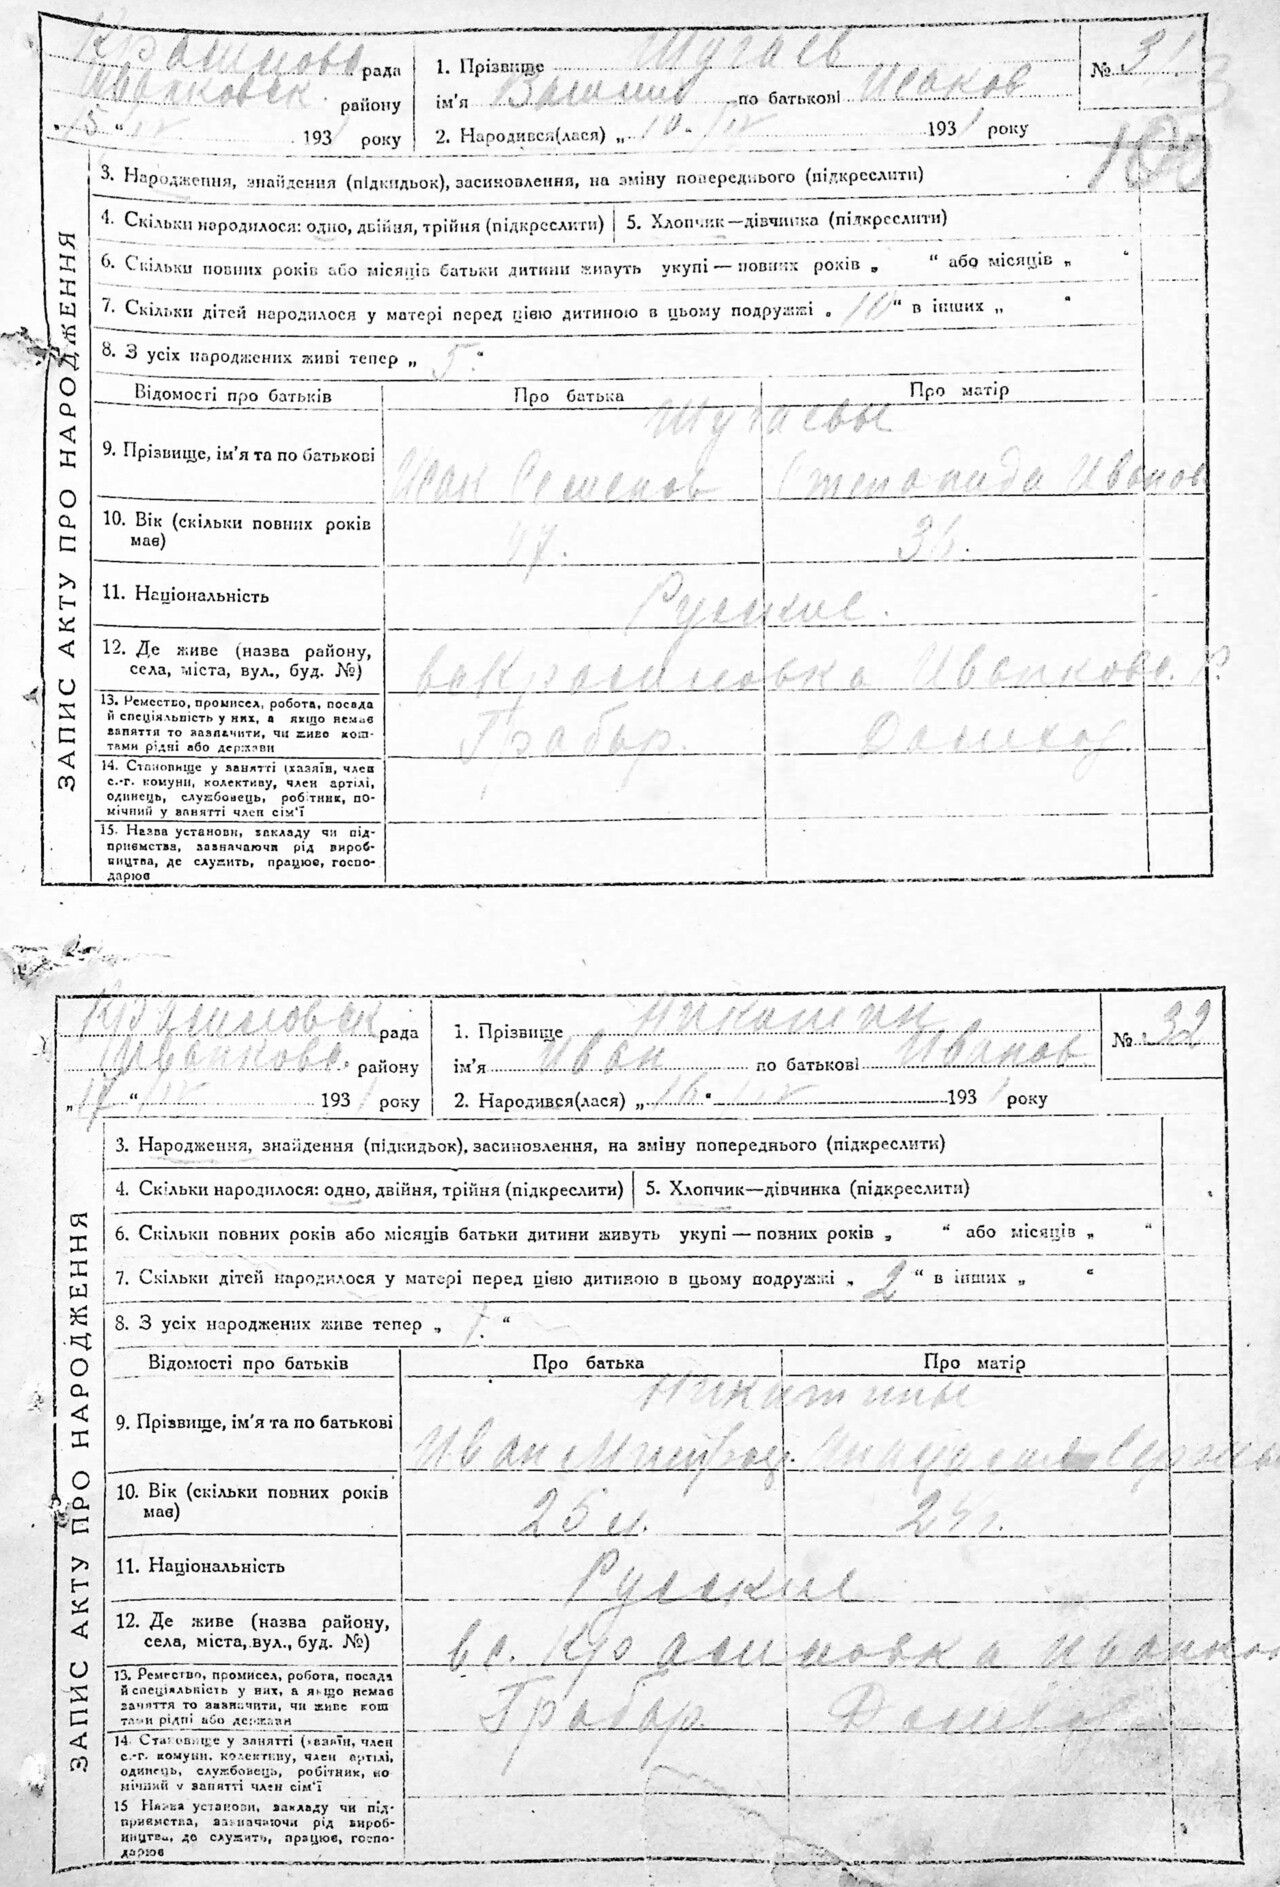 рада
району
„15“ IV 1931 року
1. Прізвище Шугаев
ім'я по батькові Исаков
2. Народився(лася) „10 IV 1931 року
№ 31
100
ЗАПИС АКТУ ПРО НАРОДЖЕННЯ
3. Народження, знайдення (підкидьок), засиновлення, на зміну попереднього (підкреслити)
4. Скільки народилося: одно, двійня, трійня (підкреслити) 5. Хлопчик—дівчинка (підкреслити)
6. Скільки повних років або місяців батьки дитини живуть укупі — повних років „ “ або місяців „ “
7. Скільки дітей народилося у матері перед цією дитиною в цьому подружжі „ 10 “ в інших „ “
8. З усіх народжених живі тепер „ 5 “
Відомості про батьків Про батька Про матір
Шугаевы
9. Прізвище, ім'я та по батькові Исак Семенов Степанида Иванов
10. Вік (скільки повних років
має) 47. 36.
11. Національність Русские.
12. Де живе (назва району,
села, міста, вул., буд. №)
13. Ремество, промисел, робота, посада
й спеціяльність у них, а якщо немає
заняття то зазначити, чи живе кош-
тами рідні або держави
Грабар. Домхоз.
14. Становище у занятті (хазяїн, член
с.-г. комуни, колективу, член артілі,
одинець, службовець, робітник, по-
мічний у занятті член сім'ї
15. Назва установи, закладу чи під-
приємства, зазначаючи рід вироб-
ництва, де служить, працює, госпо-
дарює
рада
району
„17“ IV 1931 року
1. Прізвище Никитин
ім'я Иван по батькові Иванов
2. Народився(лася) „16“ IV 1931 року
№ 32
ЗАПИС АКТУ ПРО НАРОДЖЕННЯ
3. Народження, знайдення (підкидьок), засиновлення, на зміну попереднього (підкреслити)
4. Скільки народилося: одно, двійня, трійня (підкреслити) 5. Хлопчик—дівчинка (підкреслити)
6. Скільки повних років або місяців батьки дитини живуть укупі — повних років „ “ або місяців „ “
7. Скільки дітей народилося у матері перед цією дитиною в цьому подружжі „ 2 “ в інших „ “
8. З усіх народжених живе тепер „ 1. “
Відомості про батьків Про батька Про матір
Никитины
9. Прізвище, ім'я та по батькові Иван
10. Вік (скільки повних років
має) 25 л. 24 г.
11. Національність Русские
12. Де живе (назва району,
села, міста, вул., буд. №)
13. Ремество, промисел, робота, посада
й спеціяльність у них, а якщо немає
заняття то зазначити, чи живе кош
тами рідні або держави
Грабар. Домхоз
14. Становище у занятті (хазяїн, член
с.-г. комуни, колективу, член артілі,
одинець, службовець, робітник, по
мічний у занятті член сім'ї
15 Назва установи, закладу чи під-
приємства, зазначаючи рід вироб-
ництва, де служить, працює, госпо-
дарює